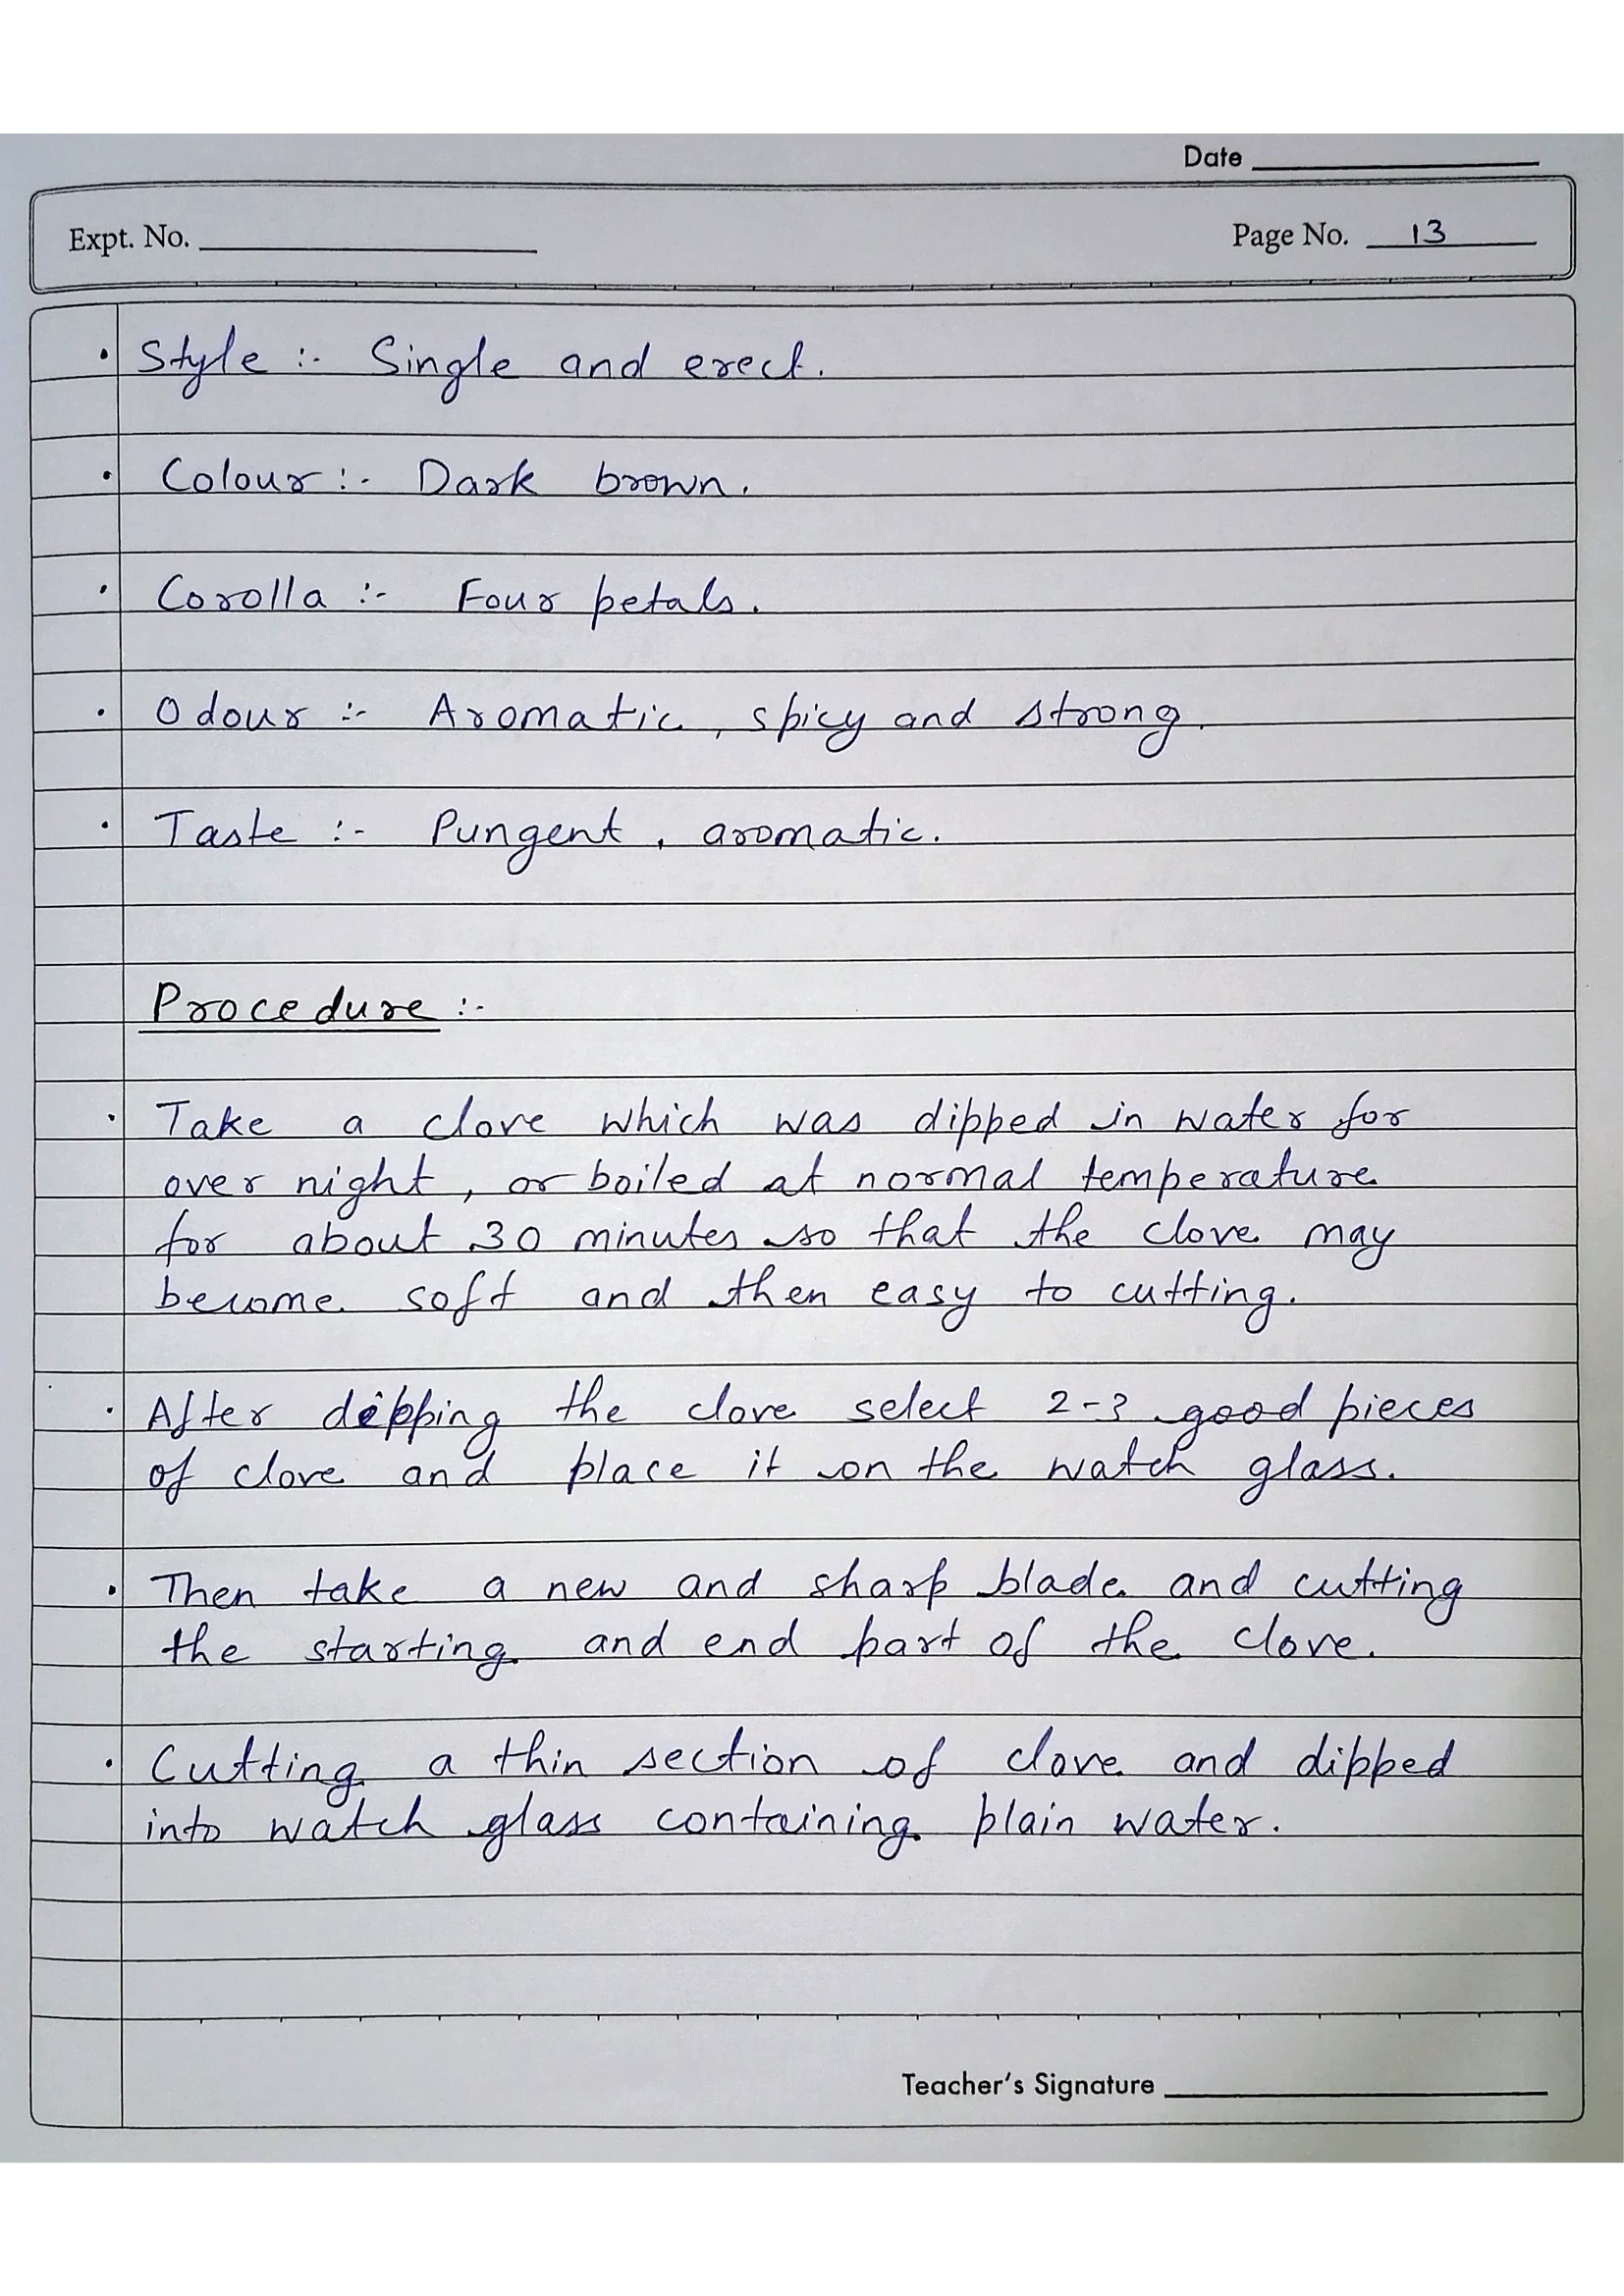 Date
Expt. No.
Page No. 13
• Style :- Single and erect.
• Colour :- Dark brown.
• Corolla :- Four petals.
• Odour :- Aromatic, spicy and strong.
• Taste :- Pungent, aromatic.
Procedure :-
• Take a clove which was dipped in water for
over night, or boiled at normal temperature
for about 30 minutes so that the clove may
become soft and then easy to cutting.
• After dipping the clove select 2-3 good pieces
of clove and place it on the watch glass.
• Then take a new and sharp blade and cutting
the starting and end part of the clove.
• Cutting a thin section of clove and dipped
into watch glass containing plain water.
Teacher's Signature